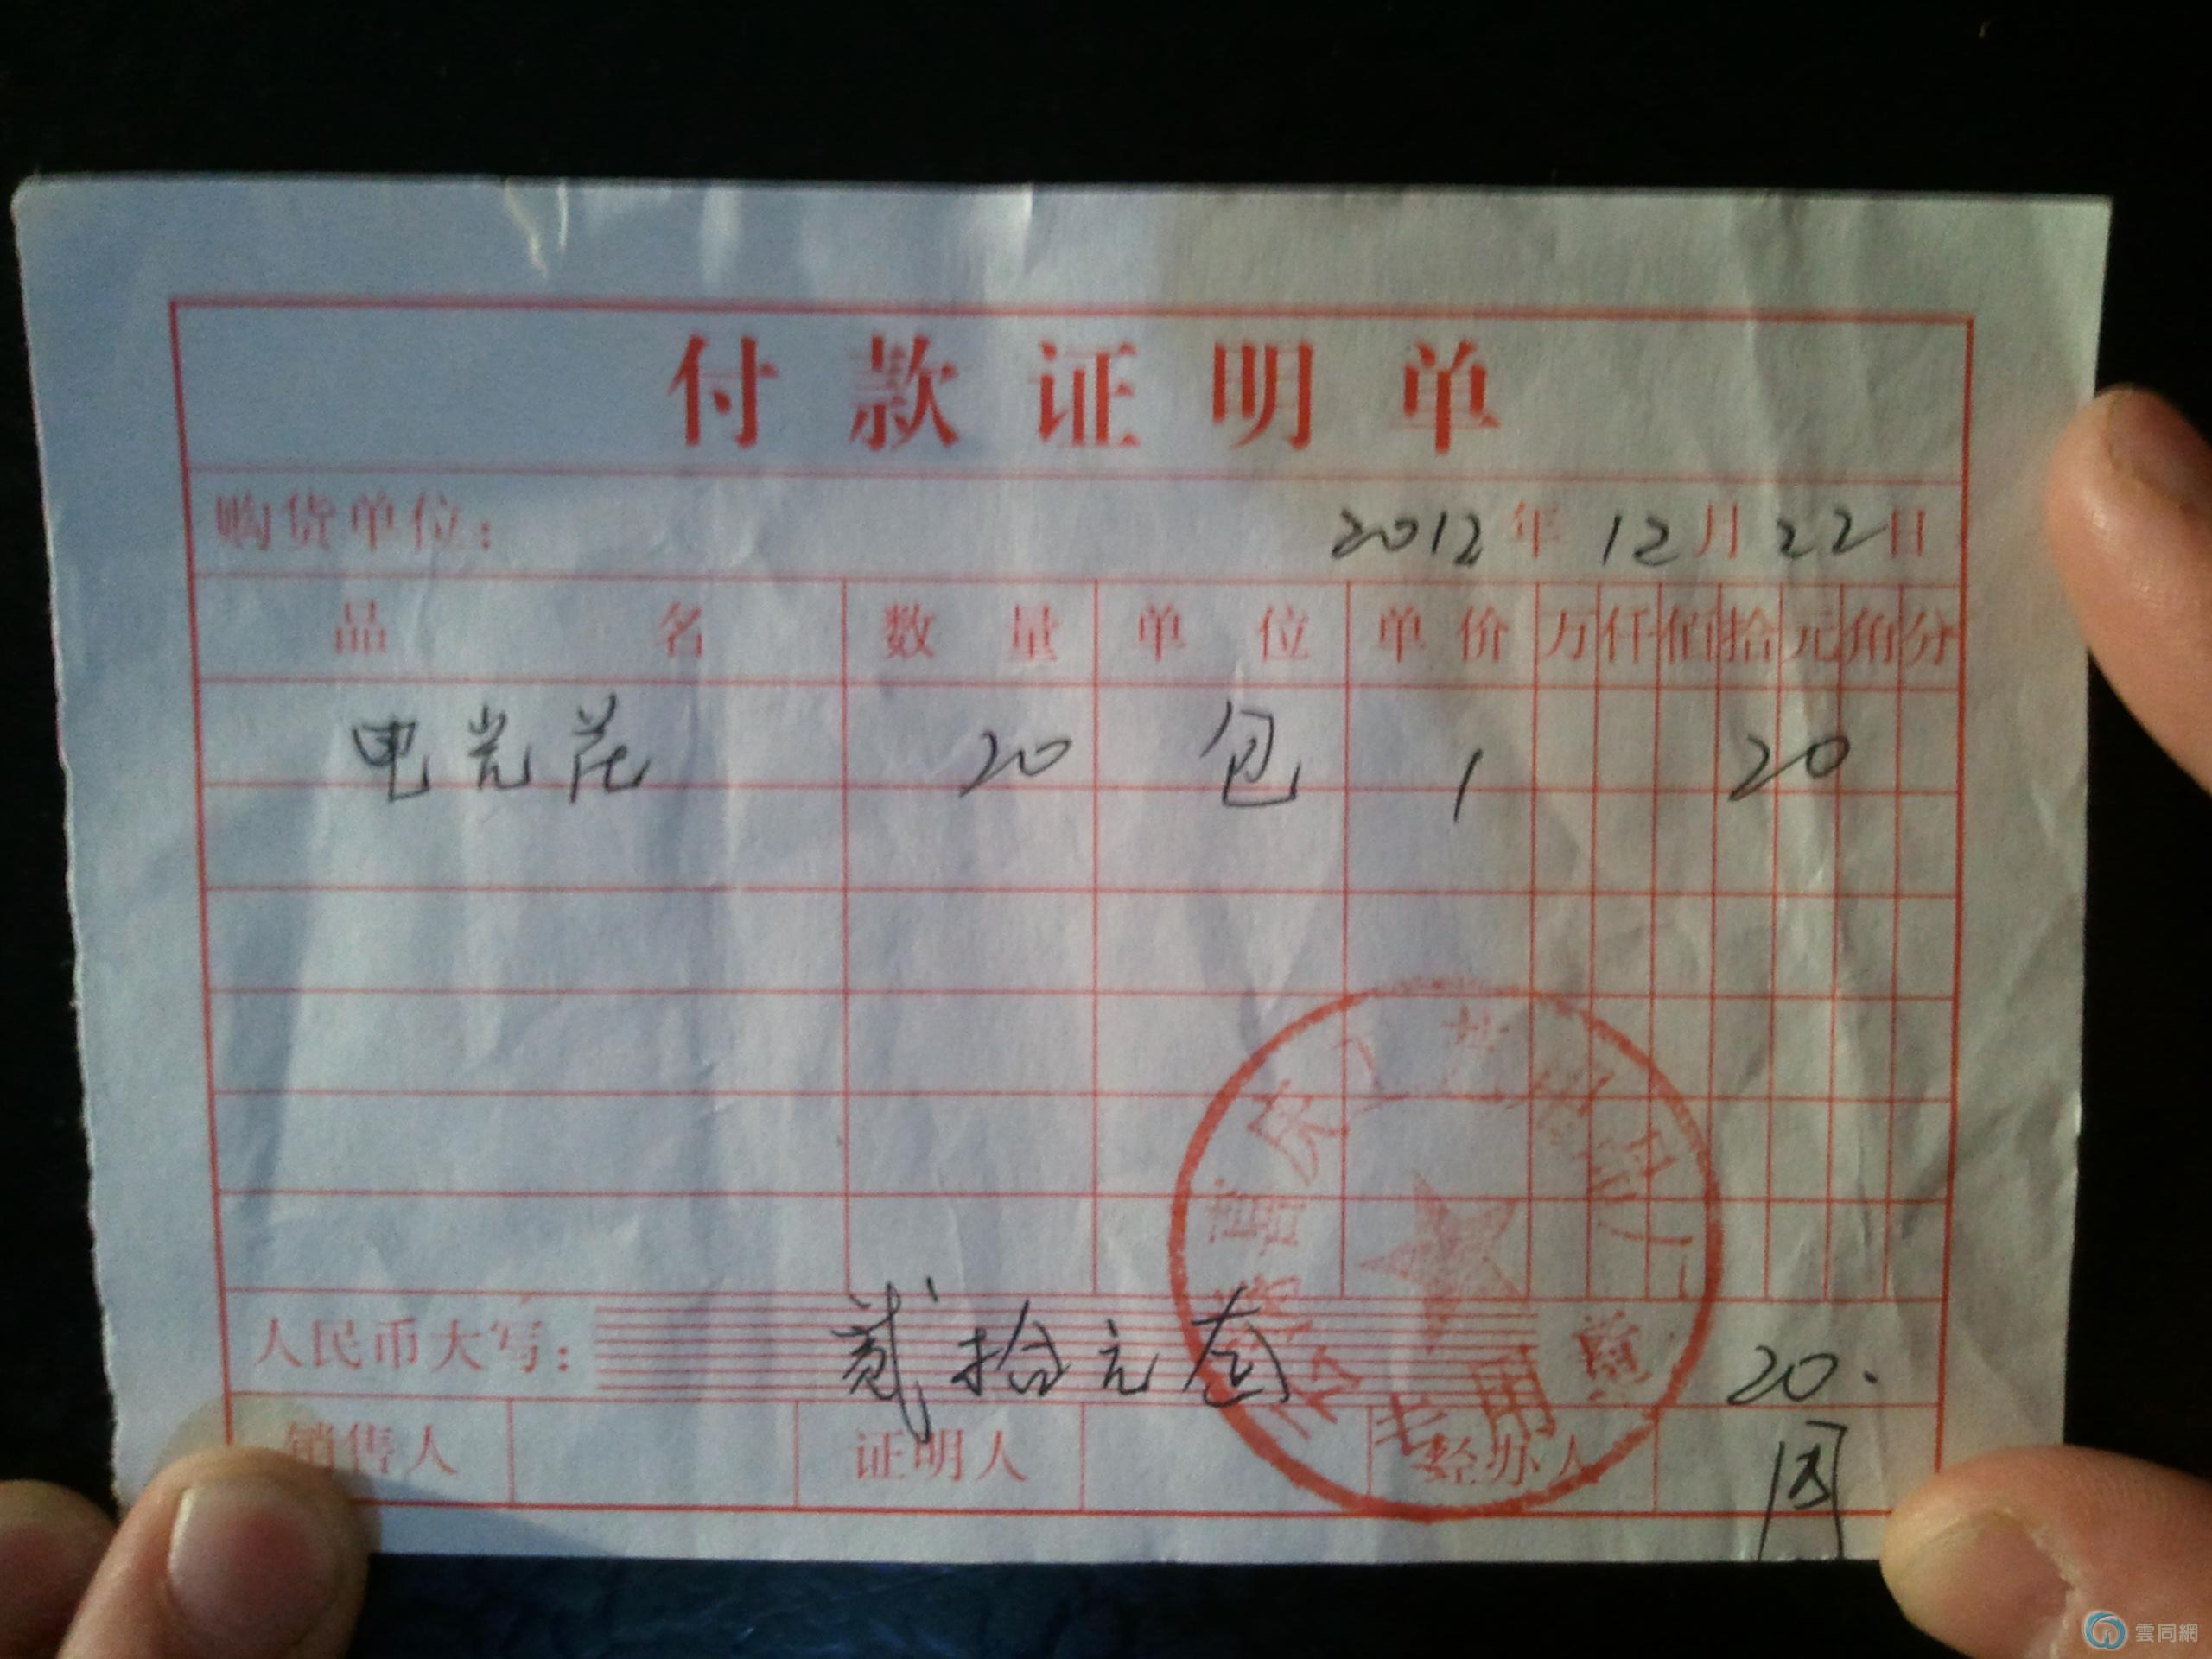 付款证明单
购货单位： 2012年12月22日
品名 数量 单位 单价 万 仟 佰 拾 元 角 分
电光花 20 包 1 20
人民币大写： 贰拾元 20.
销售人 证明人 经办人 周
专用章
雲同網